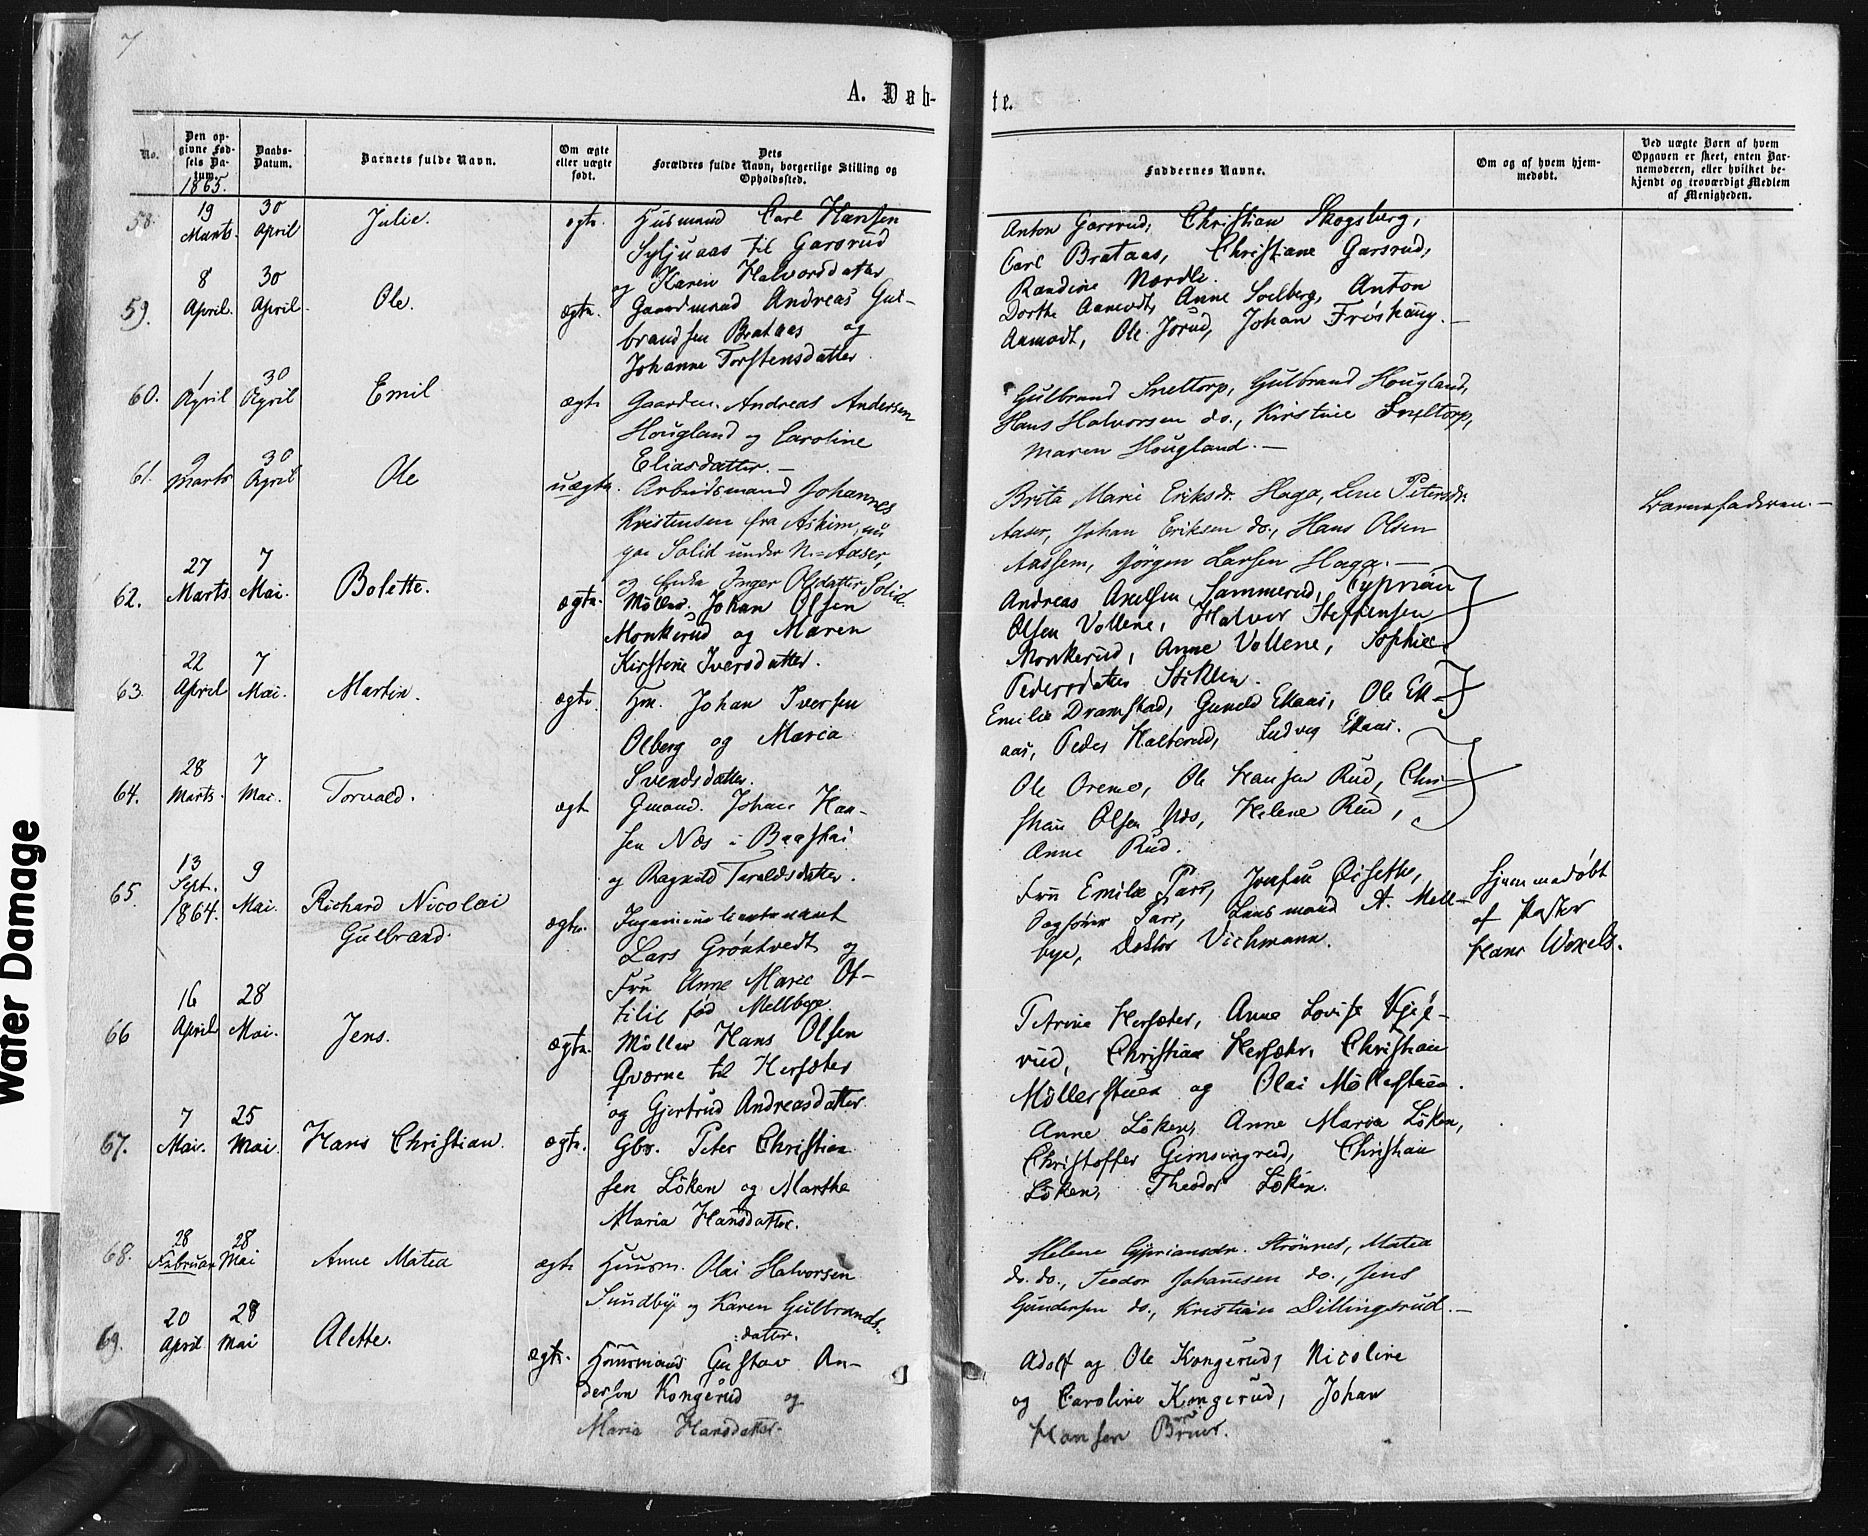 7
A. Døb-
te.
No.
Den op-
givne Fød-
sels Da-
tum.
1865.
Daabs-
Datum.
Barnets fulde Navn.
Om ægte
eller uægte
født.
Dets
Forældres fulde Navn, borgerlige Stilling og
Opholdssted.
Faddernes Navne.
Om og af hvem hjem-
medøbt.
Ved uægte Børn af hvem
Opgaven er skeet, enten Bar-
nemoderen, eller hvilket be-
kjendt og troværdigt Medlem
af Menigheden.
58.
19
Marts.
30
April
Julie.
ægte.
Husmand Carl Hansen
Syljuaas til Garsrud
og Karen Halvorsdatter
Anton Garsrud, Christian Skogsberg,
Carl Brataas, Christiane Garsrud,
Randine Nordli.
59.
8
April.
30
April.
Ole.
ægte.
Gaardmand Andreas Gul-
brandsen Brataas og
Johanne Torstensdatter.
Dorthe Aamodt, Anne Solberg, Anton
Aamodt, Ole Jorud, Johan Frøshaug.
60.
1
April
30
April
Emil
ægte
Gaardm. Andreas Andersen
Hougland og Caroline
Eliasdatter. —
Gulbrand Sneltorp, Gulbrand Hougland,
Hans Halvorsen do., Kirstine Sneltorp,
Maren Hougland. —
61.
9
Marts
30
April
Ole
uægte.
Arbeidsmand Johannes
Kristensen fra Askim, nu
paa Solid under N. Aaser,
og Enke Inger Olsdatter Solid.
Brita Marie Eriksdr. Haga, Lene Petersdr.
Aaser, Johan Eriksen do., Hans Olsen
Aassem, Jørgen Larsen Haga. —
Barnefaderen. —
62.
27
Marts
7
Mai.
Bolette.
ægte.
Møller Johan Olsen
Monkerud og Maren
Kirstine Iversdatter.
Andreas Axelsen Sammerud, Cyprian
Olsen Vollene, Halvor Steffensen
Monkerud, Anne Vollene, Sophie
Pedersdatter Stiklen.
63.
22
April
7
Mai.
Martin.
ægte.
Hm. Johan Iversen
Olberg og Maria
Svendsdatter.
Emilie Dramstad, Gunild Ekaas, Ole Ek-
aas, Peder Kalterud, Ludvig Ekaas.
64.
28
Marts.
7
Mai.
Torvald.
ægte
Gmand. Johan Han-
sen Næs i Baastad
og Ragnild Taraldsdatter.
Ole Oreme, Ole Hansen Rud, Chri-
stian Olsen Næs, Helene Rud,
Anne Rud.
65.
13
Sept.
1864.
9
Mai.
Richard Nicolai
Gulbrand.
ægte.
Ingenieurlieutenant
Lars Grøntvedt og
Fru Anne Marie Ot-
tilie fød Mellbye.
Fru Emilie Parr, Jomfru Øisethe,
Sagfører Parr, Lensmand A. Mell-
bye, Doktor Vichmann.
Hjemmedøbt
af Pastor
Hans Wexels.
66
16
April
28
Mai.
Jens.
ægte.
Møller Hans Olsen
Qværne til Hersæter
og Gjertrud Andreasdatter
Petrine Hersæter, Anne Lovise
rud, Christian Hersæter, Christian
Møllerstuen og Olai Møllerstuen.
67.
7
Mai.
25
Mai
Hans Christian.
ægte.
Gbr. Peter Christian-
sen Løken og Marthe
Maria Hansdatter.
Anne Løken, Anne Maria Løken,
Christoffer Gimsingrud, Christian
Løken, Theodor Løken.
68.
28
Februar
28
Mai
Anne Matea
ægte
Huusm. Olai Halvorsen
Sundbye og Karen Gulbrands-
datter.
Helene Cypriansdr. Strønnes, Matea
do. do., Teodor Johannesen do., Jens
Gundersen do., Kristian Dillingsrud. —
69.
20
April
28
Mai
Alette.
ægte.
Huusmand Gustav An-
dersen Kongerud og
Maria Hansdatter.
Adolf og Ole Kongerud, Nicoline
og Caroline Kongerud, Johan
Hansen
Water Damage